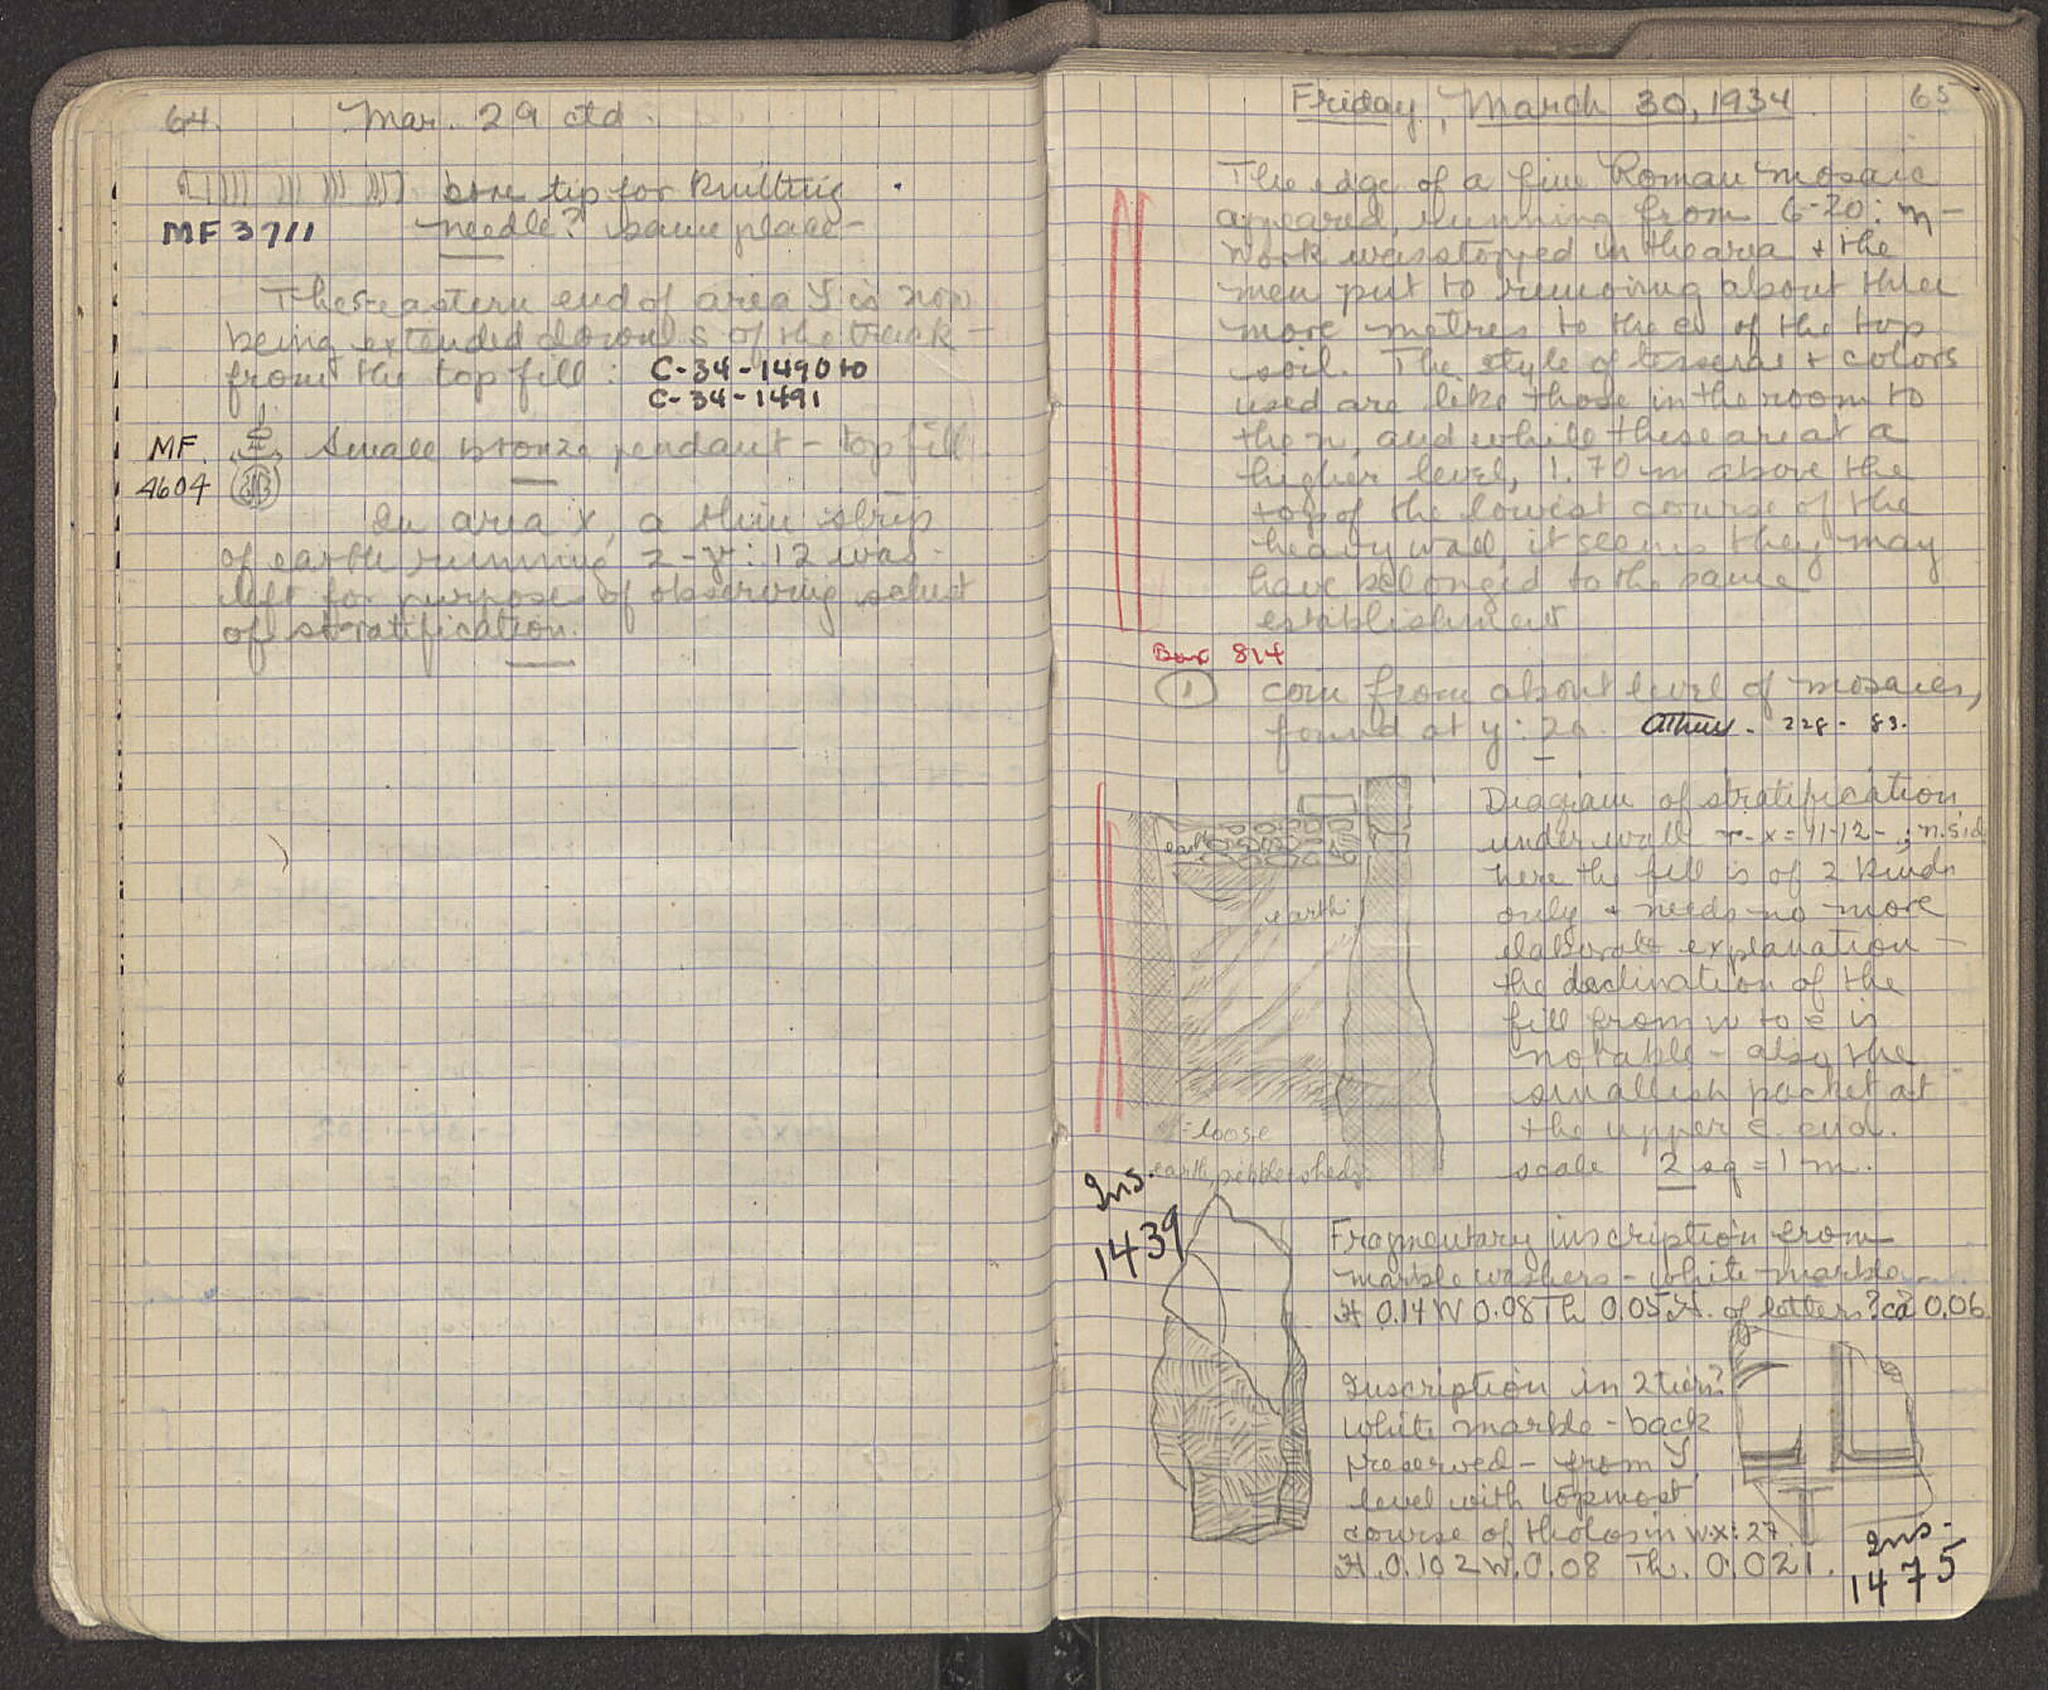 64. Mar. 29 ctd.
bone tip for knitting
MF 3711 needle? same place –
The eastern end of area Y is now
being extended down S of the track –
from the top fill: C-34-1490 to
C-34-1491
MF. Small bronze pendant – top fill.
4604
In area X, a thin strip
of earth running 2-γ: 12 was
left for purposes of observing
of stratification.
Friday, March 30, 1934 65
The edge of a fine Roman mosaic
appeared, running from 6-20: η –
work was stopped in the area + the
men put to removing about three
more metres to the of the top
soil. The style of tesserae + colors
used are like those in the room to
the n, and while these are at a
higher level, 1.70 m above the
top of the lowest course of the
heavy wall, it seems they may
have belonged to the same
establishment
Box 814
1 coin from about level of mosaics,
found at y: 20. Athens – 228 – 83.
Diagram of stratification
under wall – x = 11-12 – ; n. sid
here the fill is of 2 kinds
only + needs no more
elaborate explanation –
the declination of the
fill from w to e is
notable – also the
smallish pocket at
the upper e. end.
scale 2 sq = 1 m.
earth
earth
= loose
earth, pebbles, sherds
Ins.
1439
Fragmentary inscription from
marble washers – white marble
H 0.14 W 0.08 Th 0.05 H. of letters? ca? 0.06
Inscription in 2 tiers?
White marble – back
preserved – from Y
level with topmost
course of tholos in w.x: 27
H. 0.102 W. 0.08 Th. 0.021.
Ins.
1475